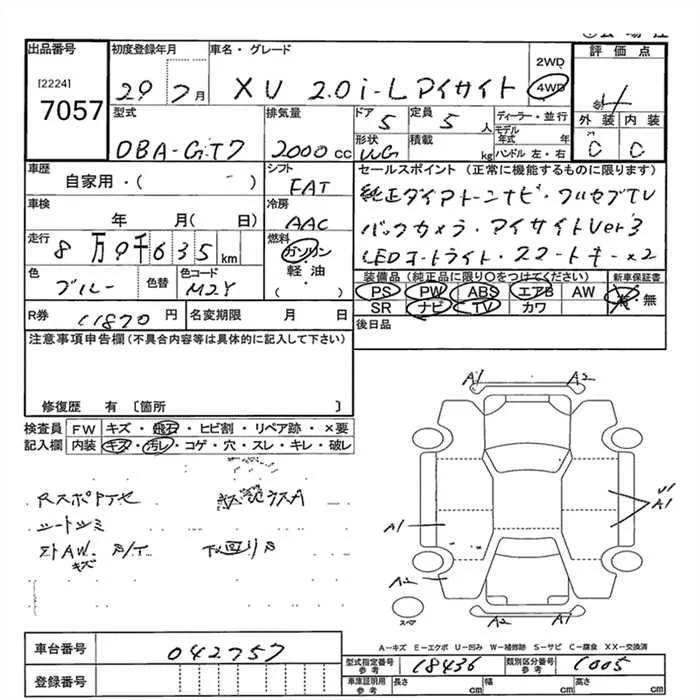 出品番号
[2224]
7057
初度登録年月
29 7月
車名・グレード
XV 2.0i-L アイサイト
2WD
4WD
評価点
4
外装 内装
C C
型式
DBA-GT7
排気量
2000 cc
ドア
5
定員
5 人
形状
WG
積載
kg
ディーラー・並行
モデル年式 年
ハンドル 左・右
車歴
自家用・( )
シフト
FAT
車検
年 月( 日)
冷房
AAC
走行
8万9千635km
燃料
ガソリン
軽油
( )
色
ブルー
色替
色コード
M2Y
セールスポイント (正常に機能するものに限ります)
純正ダイアトーンナビ・フルセグTV
バックカメラ・アイサイトVer3
LEDオートライト・スマートキーx2
装備品(純正品に限り〇をつけてください)
新車保証書
PS PW ABS エアB AW
有・無
SR ナビ TV カワ
R券
11870円
名変期限 月 日
後日品
注意事項申告欄(不具合内容等は具体的に記入して下さい)
修復歴 有 〔箇所 〕
検査員
記入欄
FW キズ・飛石・ヒビ割・リペア跡・×要
内装 キズ・汚レ・コゲ・穴・スレ・キレ・破レ
シートシミ
AW キズ
下回りサ
A1 A2
A1
A2
U1
A1
A2 A1
スペア
A−キズ E−エクボ U−凹み W−補修跡 S−サビ C−腐食 XX−交換済
車台番号
042757
登録番号
型式指定番号
参考
18436
類別区分番号
参考
1005
車庫証明用
参考
長さ cm
幅 cm
高さ cm